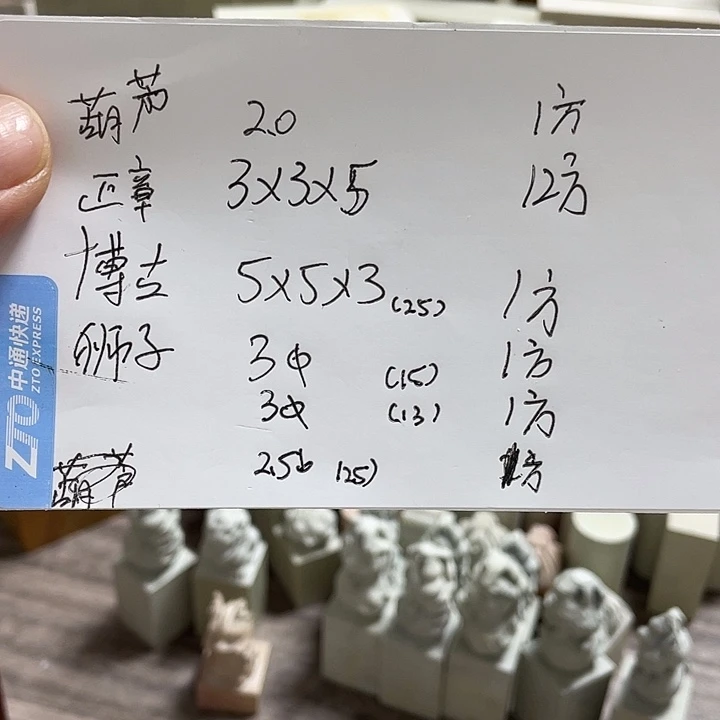 葫芦 2.0 1方
正章 3×3×5 12方
博古 5×5×3 (25) 1方
狮子 3中 (15) 1方
3中 (13) 1方
葫芦 2.5 (25) 方
中通快递
ZTO EXPRESS
ZTO